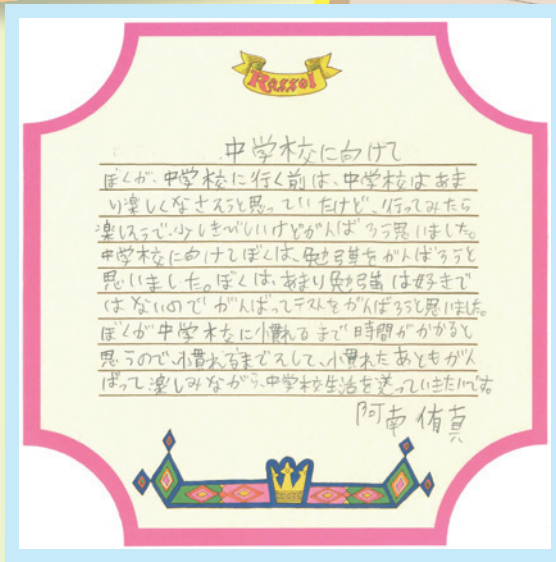 Rassel
中学校に向けて
ぼくが、中学校に行く前は、中学校はあま
り楽しくなさそうと思っていたけど、行ってみたら
楽しそうで、少しきびしいけどがんばろう思いました。
中学校に向けてぼくは、勉強をがんばろうと
思いました。ぼくは、あまり勉強は好きで
はないのでがんばってテストをがんばろうと思いました。
ぼくが中学校に慣れるまで時間がかかると
思うので、慣れるまでスして、慣れたあともがん
ばって楽しみながら、中学校生活を送っていきたいです。
阿南 侑真